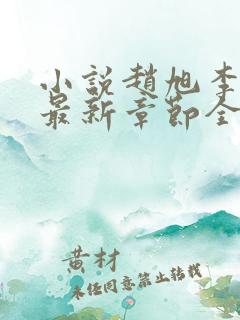 小説趙旭李
最新章節全
黄材
未经同意禁止转载